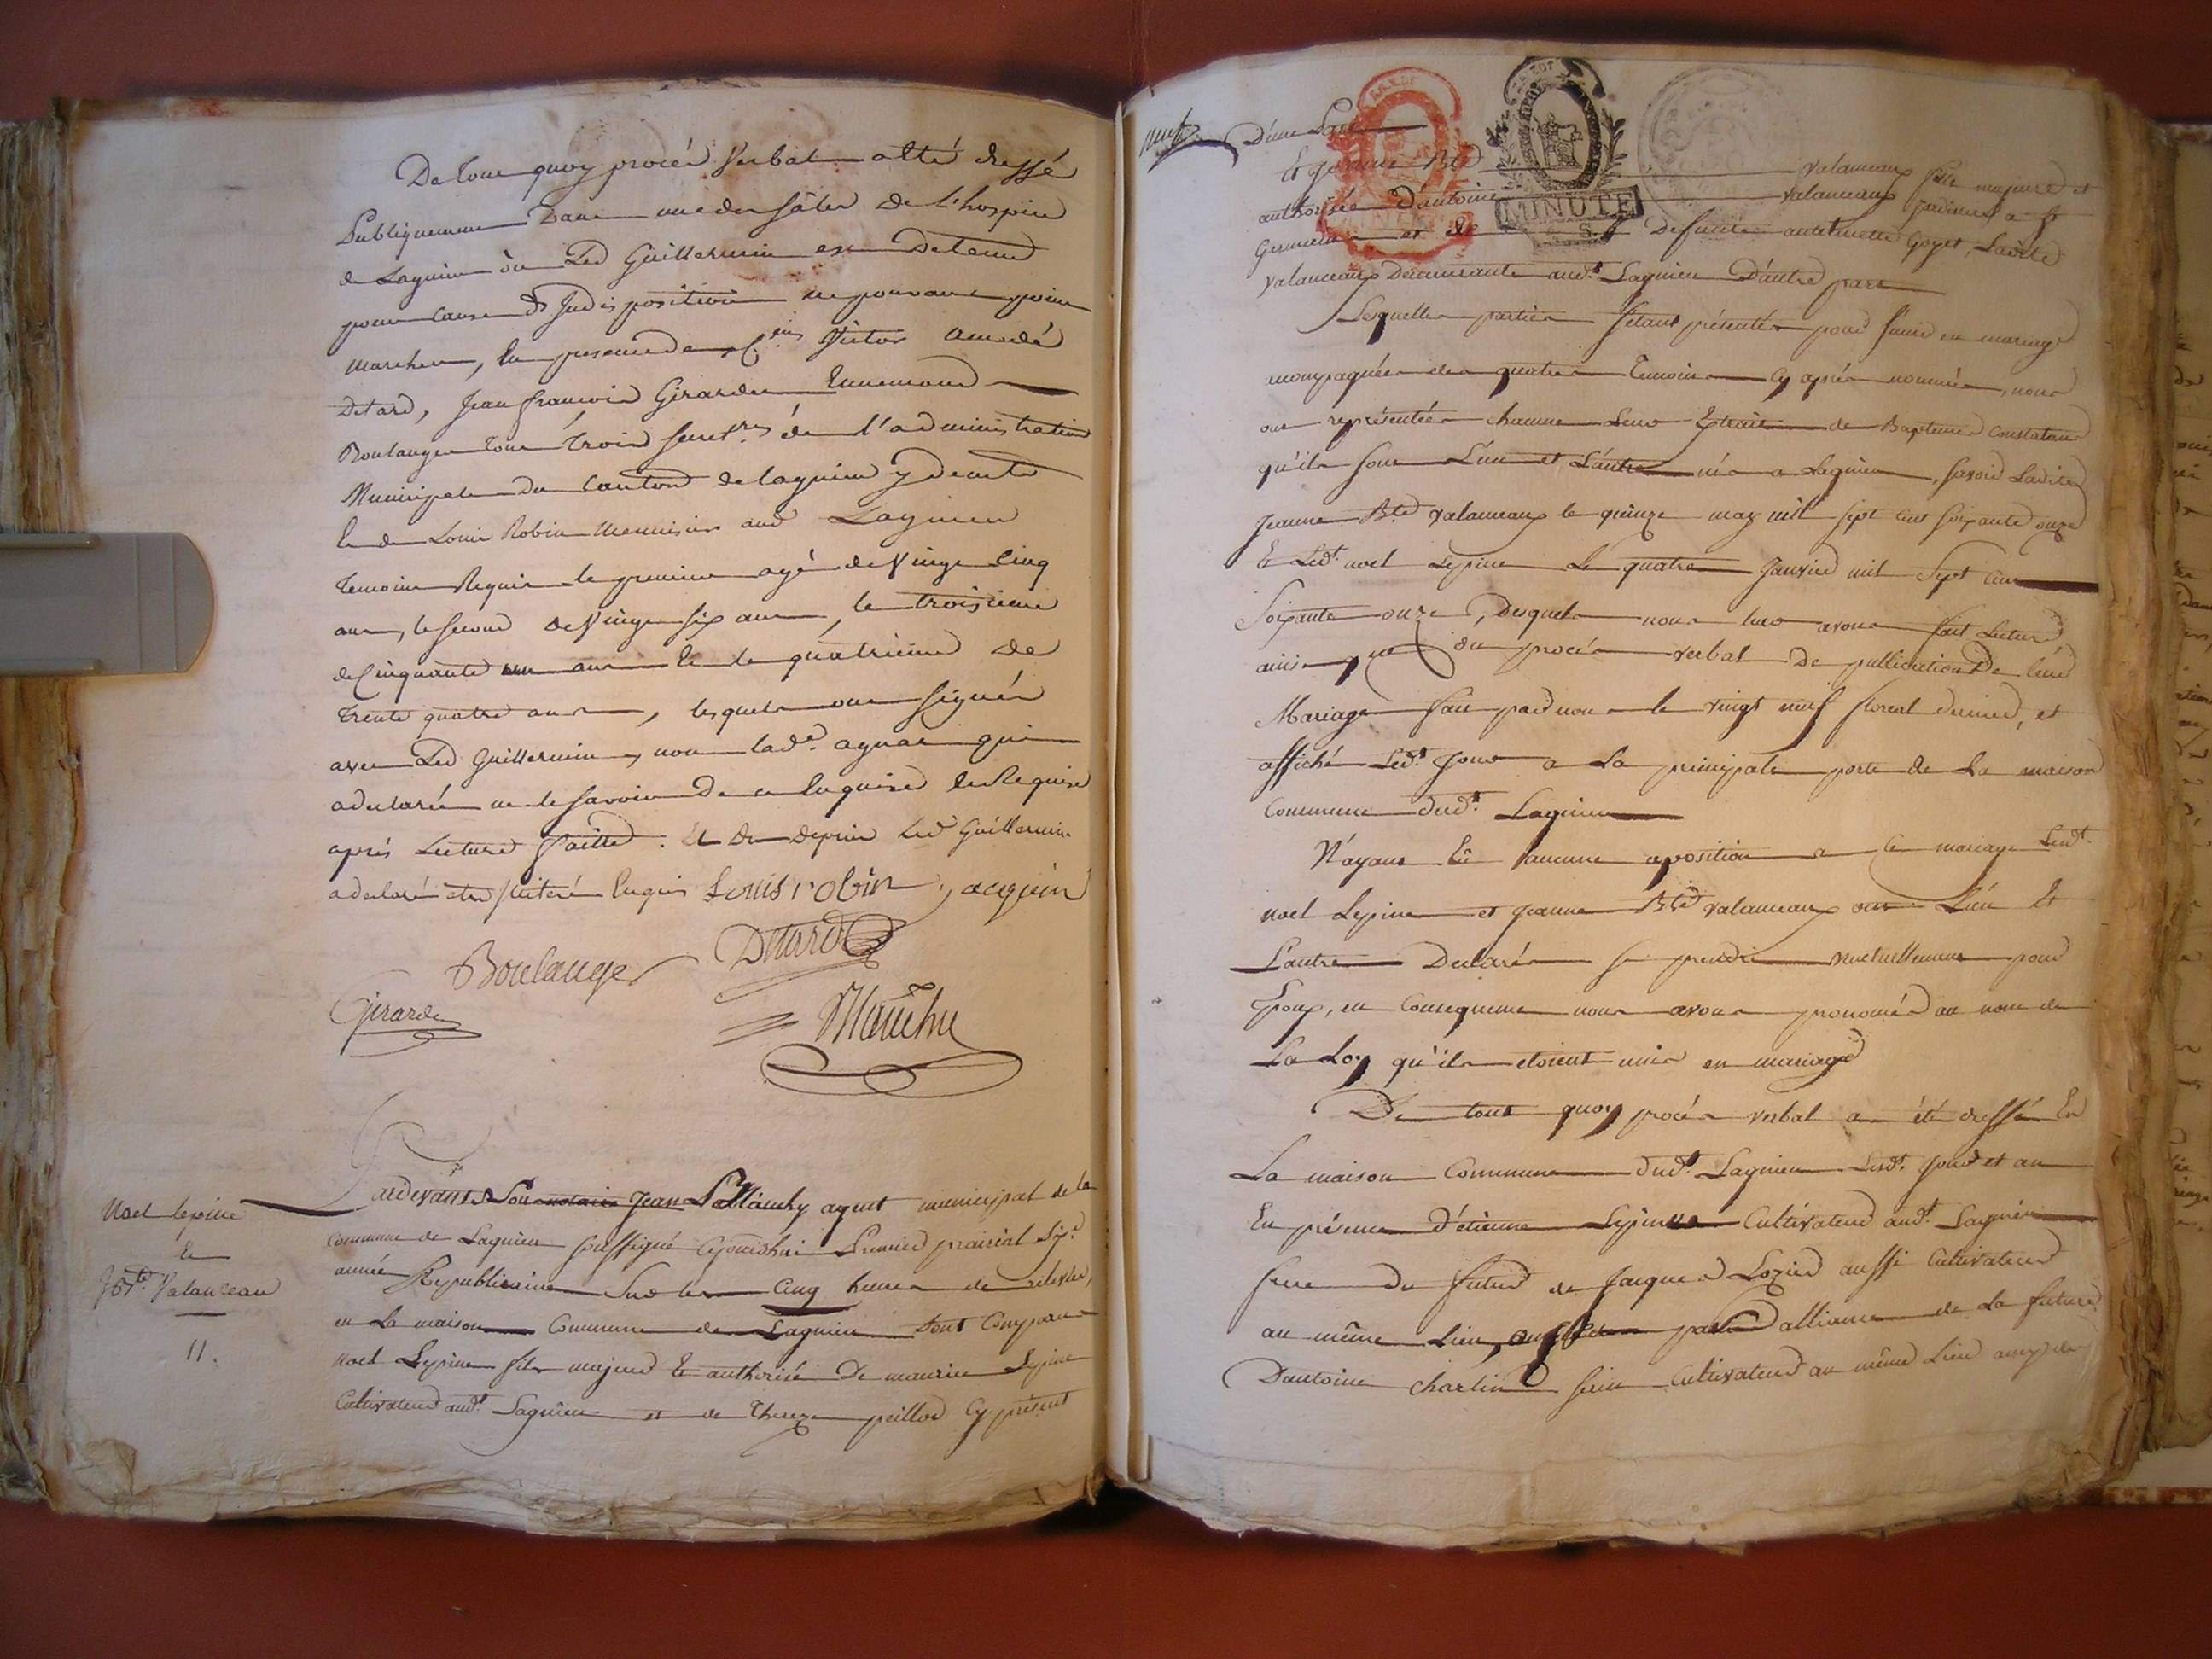 De tout quoy procés Verbal a été dressé
Publiquement Dans une des sâles de l'hospice
de Lagnieu ou Led Guillermin est Detenu
pour cause d'Indisposition ne pouvant point
marcher, En presence de Victor amedé
Detard, Jean françois Girardet Ennemond
Boulanger tous trois secret.res de l'administration
Municipale du Canton de lagnieu y demt
Et de Louis Robin Menuisier aud Lagnieu
temoins Requis le premier agé de Vingt Cinq
ans, le second de Vingt six ans, le troisieme
de Cinquante un ans Et le quatrieme de
trente quatre ans, lesquels ont signés
avec Led Guillermin, non lad.e agnas qui
a declarée ne le savoir De ce Enquise Et Requise
aprés Lecture faitte. Et Du Depuis Led Guillermin
a declaré etre illiteré Enquis Louis robin, acquin
Boulanger Detard
Girardet
Mauchy
Noel Lepine
Et
Jne Bte. Valanceau
11.
Pardevant Nou notaire Jean Mauchy agent municipal de la
Commune de Lagnieu soussigné Cejourdhui Premier prairial Six.e
année Republicaine Sur les Cinq heures de relevée,
en La maison Commune de Lagnieu sont Comparus
noel Lepine fils majeur Et authorisé De maurice Lepine
Cultivateur aud.t Lagnieu et de Thereze peillod Cy présent
D'une Part
Et Jeanne Bte Valanceaux fille majeure et
authorisée D'antoine Valanceaux
et de Defunte antoinette Goyet, Ladite
Valanceaux Demeurante aud.t Lagnieu D'autre part
Lesquelles parties s'etant présentées pour s'unir en mariage
accompagnées des quatres Temoins Cy aprés nommés, nous
ont représentées chacune Leur Extrait de Bapteme Constatant
qu'ils sont L'un et L'autre nés a Lagnieu, savoir Ladite
Jeanne Bte Valanceaux le quinze may mil sept cent soixante onze
Et Led.t noel Lepine Le quatre Janvier mil Sept Cent
Soixante onze, Desquels nous leur avons fait Lecture
ainsi que du procés verbal De publication De leur
Mariage fait par nous le vingt neuf floreal dernier, et
affiché Led.t Jour a La principale porte de La maison
Commune dud.t Lagnieu
N'ayant Eû aucune oposition a Ce mariage Lesd.t
noel Lepine et Jeanne Bte Valanceaux ont L'un Et
L'autre Declarés se prendre mutuellement pour
Epoux, en Consequence nous avons prononcé au nom de
La Loy qu'ils etoient unis en mariage
De tout quoy procés verbal a été dressé En
La maison Commune dud.t Lagnieu Lesd.t Jour et an
En présence D'étienne Lepine Cultivateur aud.t Lagnieu
frere du futur de Jacques Lozier aussi Cultivateur
au même Lieu, par alliance de La future
D'antoine Charlin Cultivateur au même Lieu amy des
MINUTE